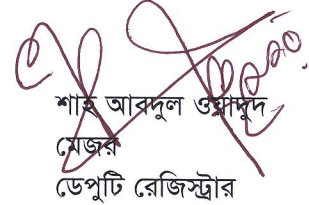 শাহ আবদুল ওয়াদুদ
মেজর
ডেপুটি রেজিস্ট্রার